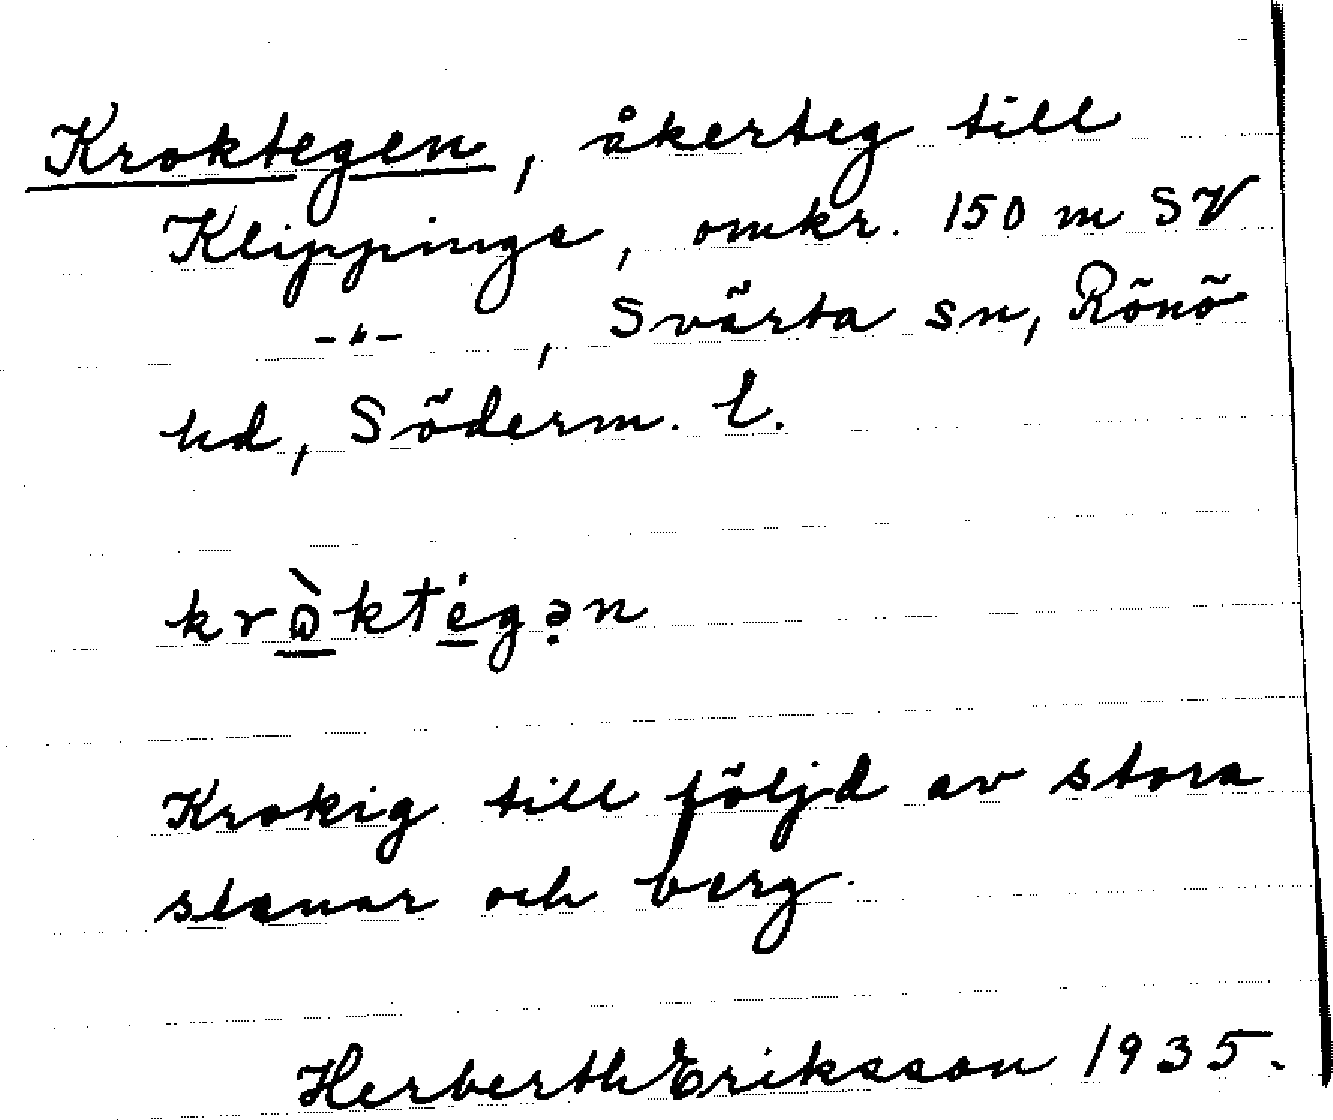 Kroktegen, åkerteg till
Klippinge, omkr. 150 m SV
-"-, Svärta sn, Rönö
hd, Söderm. l.
krὼktégə̣n
Krokig till följd av stora
stenar och berg.
Herberth Eriksson 1935.